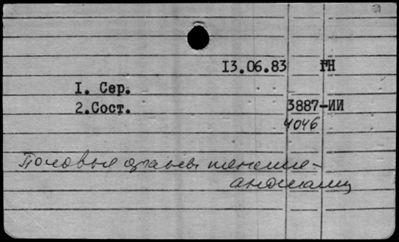 13.06.83 ГН
1. Сер.
2.Сост. 3887-ИИ
4046
Половые органы женские-
аномалии